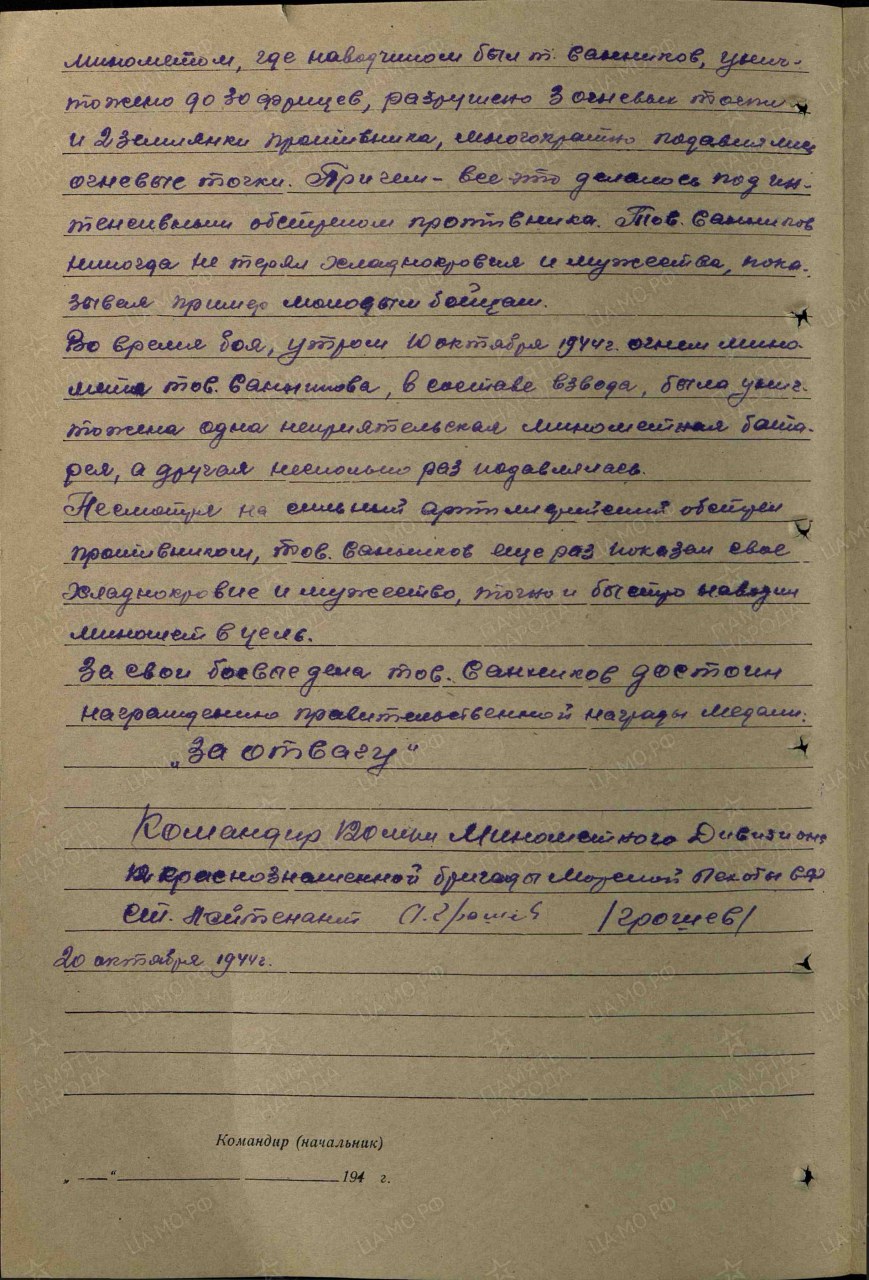 минометом, где наводчиком был т. Санников, унич-
тожено до 30 фрицев, разрушено 3 огневых точки
и 2 землянки противника, многократно подавлялись
огневые точки. Причем - все это делалось под ин-
тенсивным обстрелом противника. Тов. Санников
никогда не терял хладнокровия и мужества, пока-
зывая пример молодым бойцам.
Во время боя, утром 10 октября 1944 г. огнем мино-
мета тов. Санникова, в составе взвода, была унич-
тожена одна неприятельская минометная бата-
рея, а другая несколько раз подавлялась.
Несмотря на сильный артиллерийский обстрел
противником, тов. Санников еще раз показал свое
хладнокровие и мужество, точно и быстро наводил
миномет в цель.
За свои боевые дела тов. Санников достоин
награждению правительственной награды медали:
„За отвагу"
Командир 120 м/м Минометного Дивизиона
12 краснознаменной бригады Морской Пехоты СФ
ст. лейтенант /Грошев/
20 октября 1944 г.
Командир (начальник)
„ — “ 194 г.
ПАМЯТЬ НАРОДА
ЦАМО.РФ